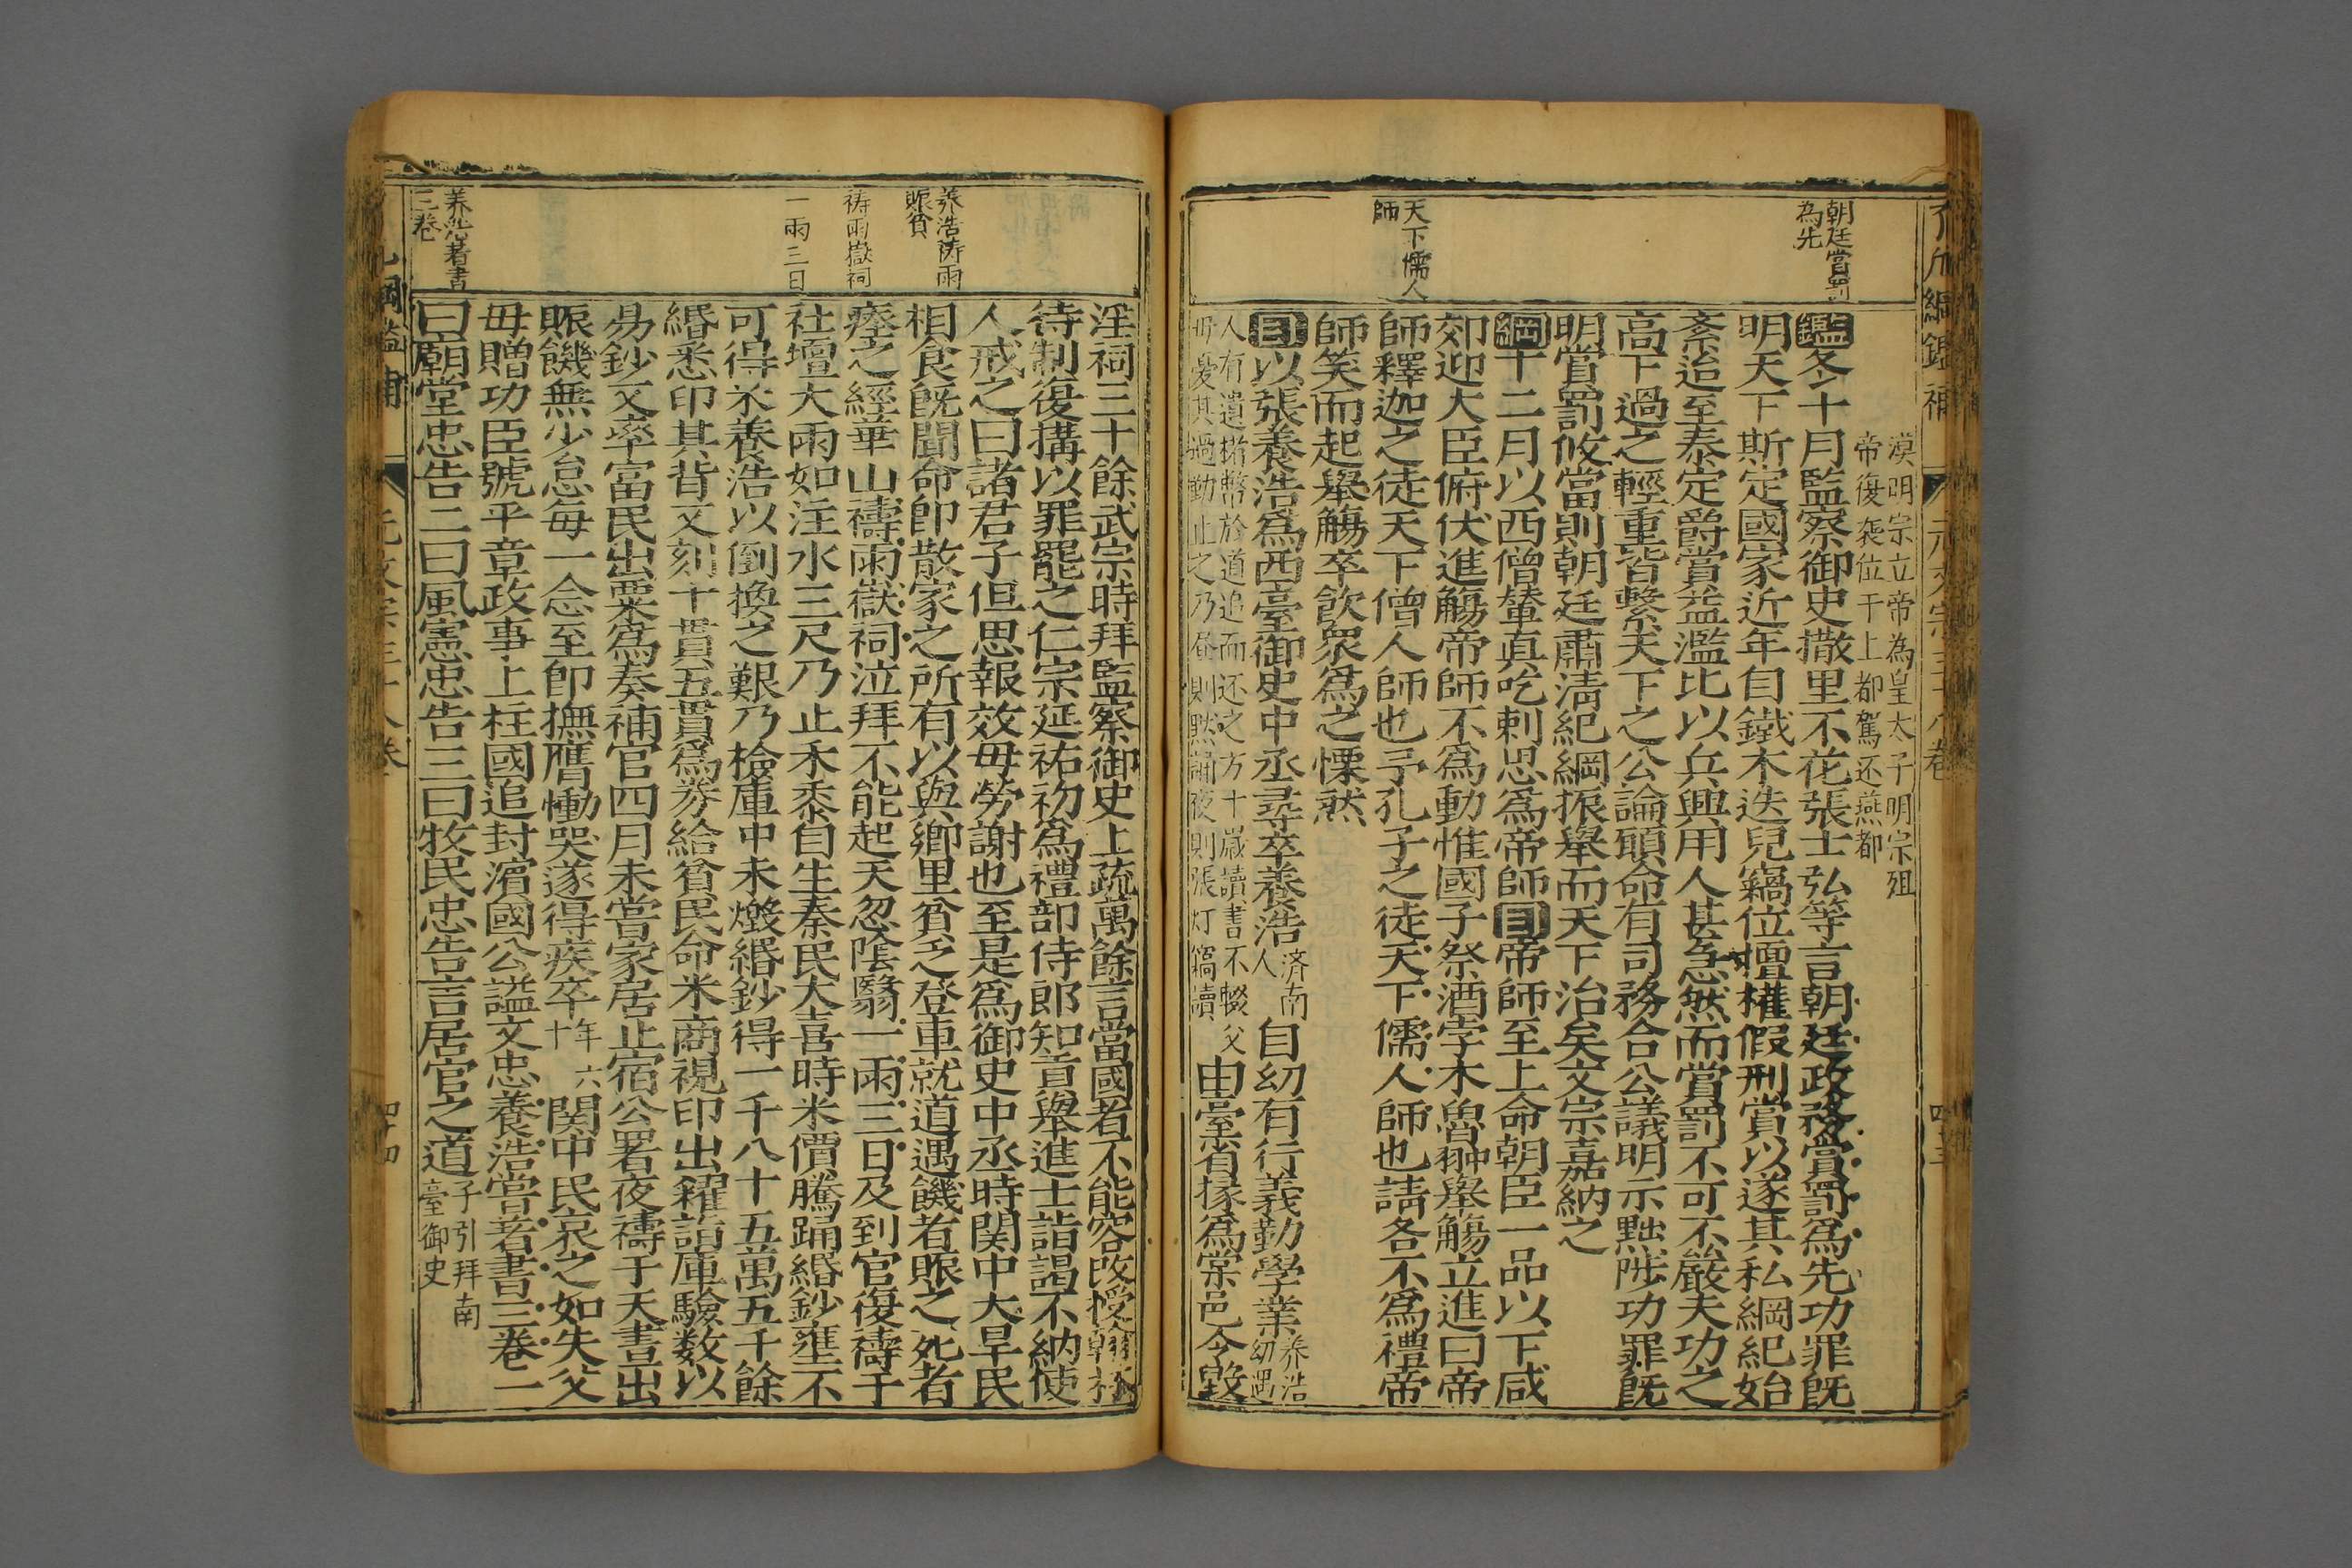 朝廷當罰
為先
天下儒人
師
漠明宗立帝為皇太子明宗殂
帝復襲位于上都駕还燕都
鑑冬十月監察御史撒里不花張士弘等言朝廷政務賞罰爲先功罪旣
明天下斯定國家近年自鐵木迭兒竊位擅權假刑賞以遂其私綱紀始
紊迨至泰定爵賞益濫比以兵興用人甚急然而賞罰不可不嚴夫功之
高下過之輕重皆繫天下之公論願命有司務合公議明示黜陟功罪旣
明賞罰攸當則朝廷肅淸紀綱振舉而天下治矣文宗嘉納之
綱十二月以西僧輦真吃剌思爲帝師目帝師至上命朝臣一品以下咸
郊迎大臣俯伏進觴帝師不爲動惟國子祭酒孛木魯翀舉觴立進曰帝
師釋迦之徒天下僧人師也予孔子之徒天下儒人師也請各不爲禮帝
師笑而起舉觴卒飮衆爲之慄然
目以張養浩爲西臺御史中丞尋卒養浩濟南人自幼有行義勤學業养浩幼遇
人有遺楮幣於道追而还之方十歲讀書不輟父
毋憂其過勤止之乃昼則黙誦夜則張灯竊讀
由臺省掾爲棠邑令毀
养浩祷雨
賑貧
祷雨嶽祠
一雨三日
养浩著書
三卷
淫祠三十餘武宗時拜監察御史上疏萬餘言當國者不能容改授翰林
待制復搆以罪罷之仁宗延祐初爲禮部侍郎知貢舉進士詣謁不納使
人戒之曰諸君子但思報效毋勞謝也至是爲御史中丞時関中大旱民
相食旣聞命卽散家之所有以與鄉里貧乏登車就道遇饑者賑之死者
瘞之經華山禱雨嶽祠泣拜不能起天忽陰翳一雨三日及到官復禱于
社壇大雨如注水三尺乃止禾黍自生秦民大喜時米價騰踊緡鈔壅不
可得米養浩以倒換之艱乃檢庫中未燬緡鈔得一千八十五萬五千餘
緡悉印其背又刻十貫五貫爲券給貧民命米商視印出糴詣庫驗数以
易鈔又率富民出粟爲奏補官四月未嘗家居止宿公署夜禱于天晝出
賑饑無少怠每一念至卽撫膺慟哭遂得疾卒年六十関中民哀之如失父
毋贈功臣號平章政事上柱國追封濱國公謚文忠養浩嘗著書三卷一
曰廟堂忠告二曰風憲忠告三曰牧民忠告言居官之道子引拜南臺御史